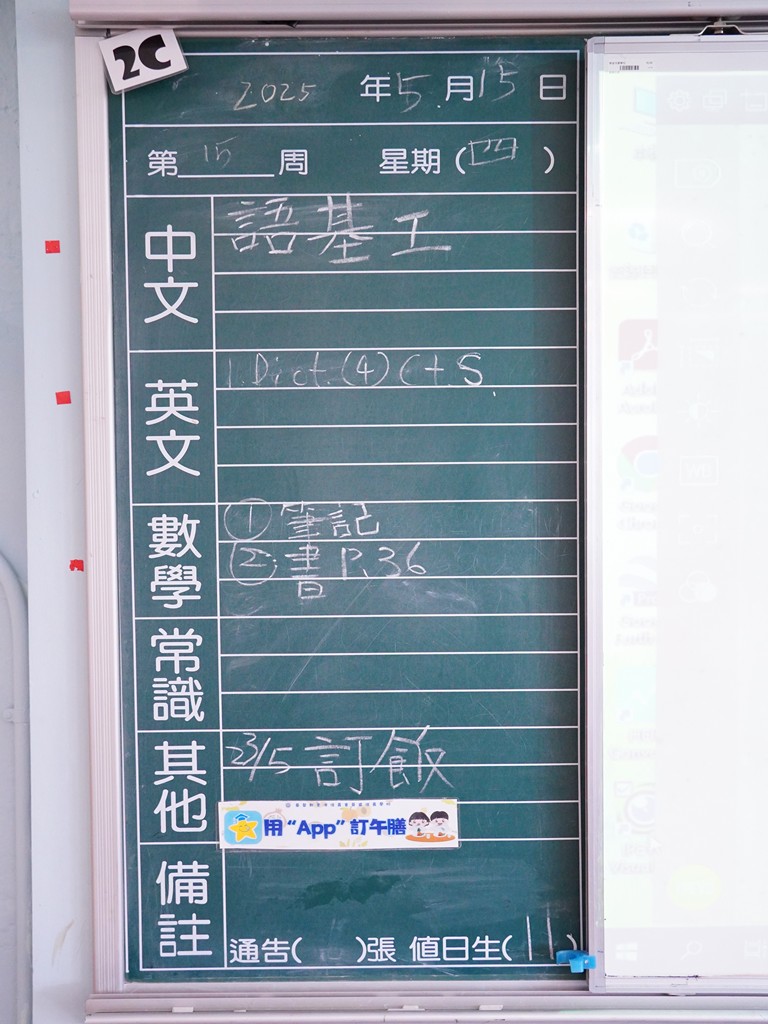 2C
2025 年 5 月 15 日
第 15 周 星期 (四)
中文
語基工
英文
1. Dict. (4) C+S
數學
① 筆記
② 書 P.36
常識
其他
23/5 訂飯
用“App”訂午膳
備註
通告( )張 值日生(11)